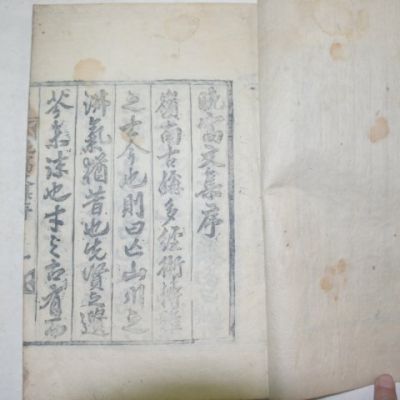 晩寤文集序
嶺南古稱多經術持
之士今也則曰亡山川之
淑氣猶昔也先賢之遺
未沫也才之古有而